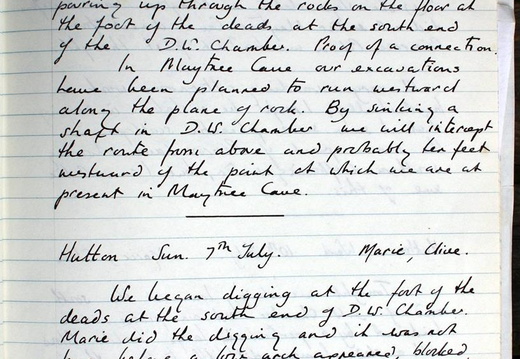 pouring up through the rocks on the floor at
the foot of the deads at the south end
of the D.W. Chamber. Proof of a connection.
In Maytree Cave our excavations
have been planned to run westward
along the plane of rock. By sinking a
shaft in D.W. Chamber we will intercept
the route from above and probably ten feet
westward of the point at which we are at
present in Maytree Cave.
Hutton Sun. 7th July. Marie, Clive.
We began digging at the foot of the
deads at the south end of D.W. Chamber.
Marie did the digging and it was not
long before a low arch appeared, blocked